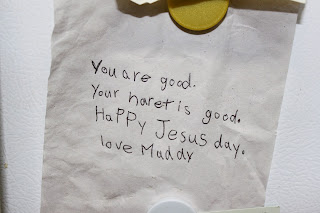 You are good.
Your haret is good.
HaPPy Jesus day.
love Maddy